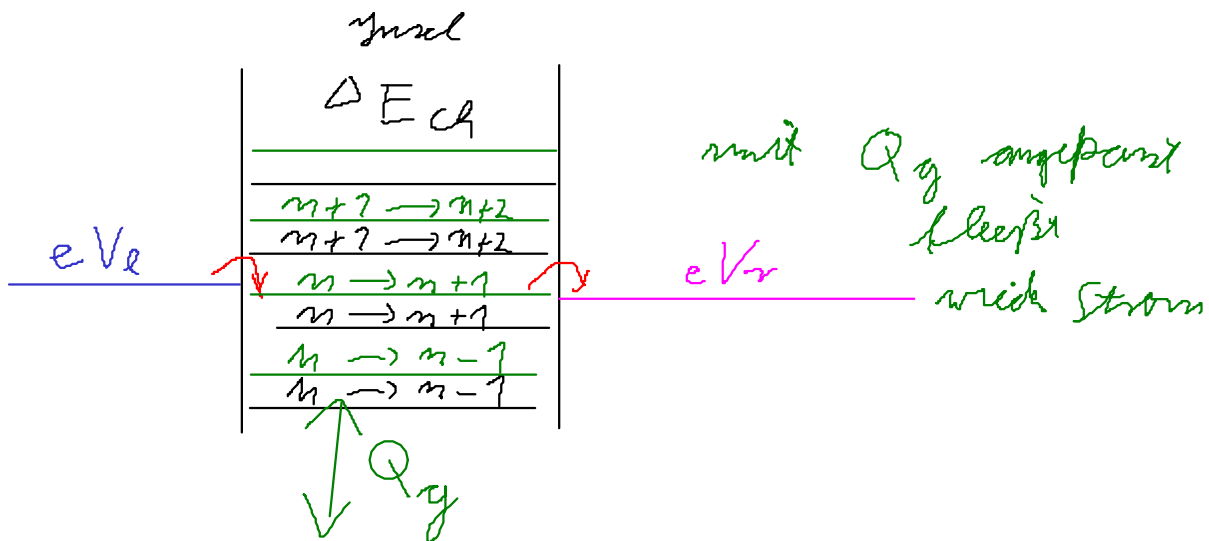 Insel
Δ E ch
n+1 → n+2
n+1 → n+2
n → n+1
n → n+1
n → n-1
n → n-1
Q g
eVl
eVr
mit Qg angepasst
fließt
wieder Strom